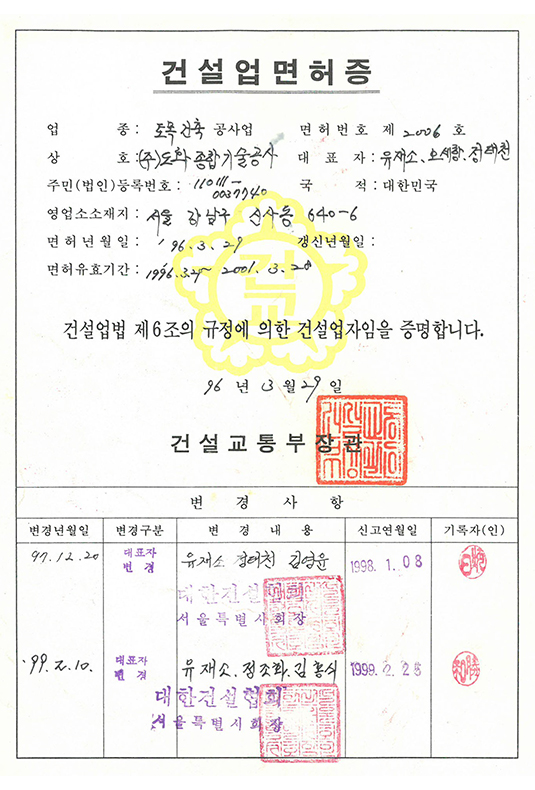 건설업면허증
업 종 : 토목건축 공사업 면허번호 제 2006 호
상 호 : (주)도화종합기술공사 대 표 자 : 유재소. 오세항. 정태천
주민(법인)등록번호 : 110111- 0037740 국 적 : 대한민국
영업소소재지 : 서울 강남구 신사동 640-6
면허년월일 : '96. 3. 29 갱신년월일 :
면허유효기간 : 1996. 3. 29 ~ 2001. 3. 28
건설업법 제6조의 규정에 의한 건설업자임을 증명합니다.
96 년 03 월 29 일
건설교통부장관
변 경 사 항
변경년월일 변경구분 변 경 내 용 신고연월일 기록자(인)
97. 12. 20 대표자 변 경 유재소 정태천 김영윤 1998. 1. 08
대한건설협회
서울특별시회장
'99. 2. 10. 대표자 변 경 유재소. 정조화. 김홍식 1999. 2. 25
대한건설협회
서울특별시회장